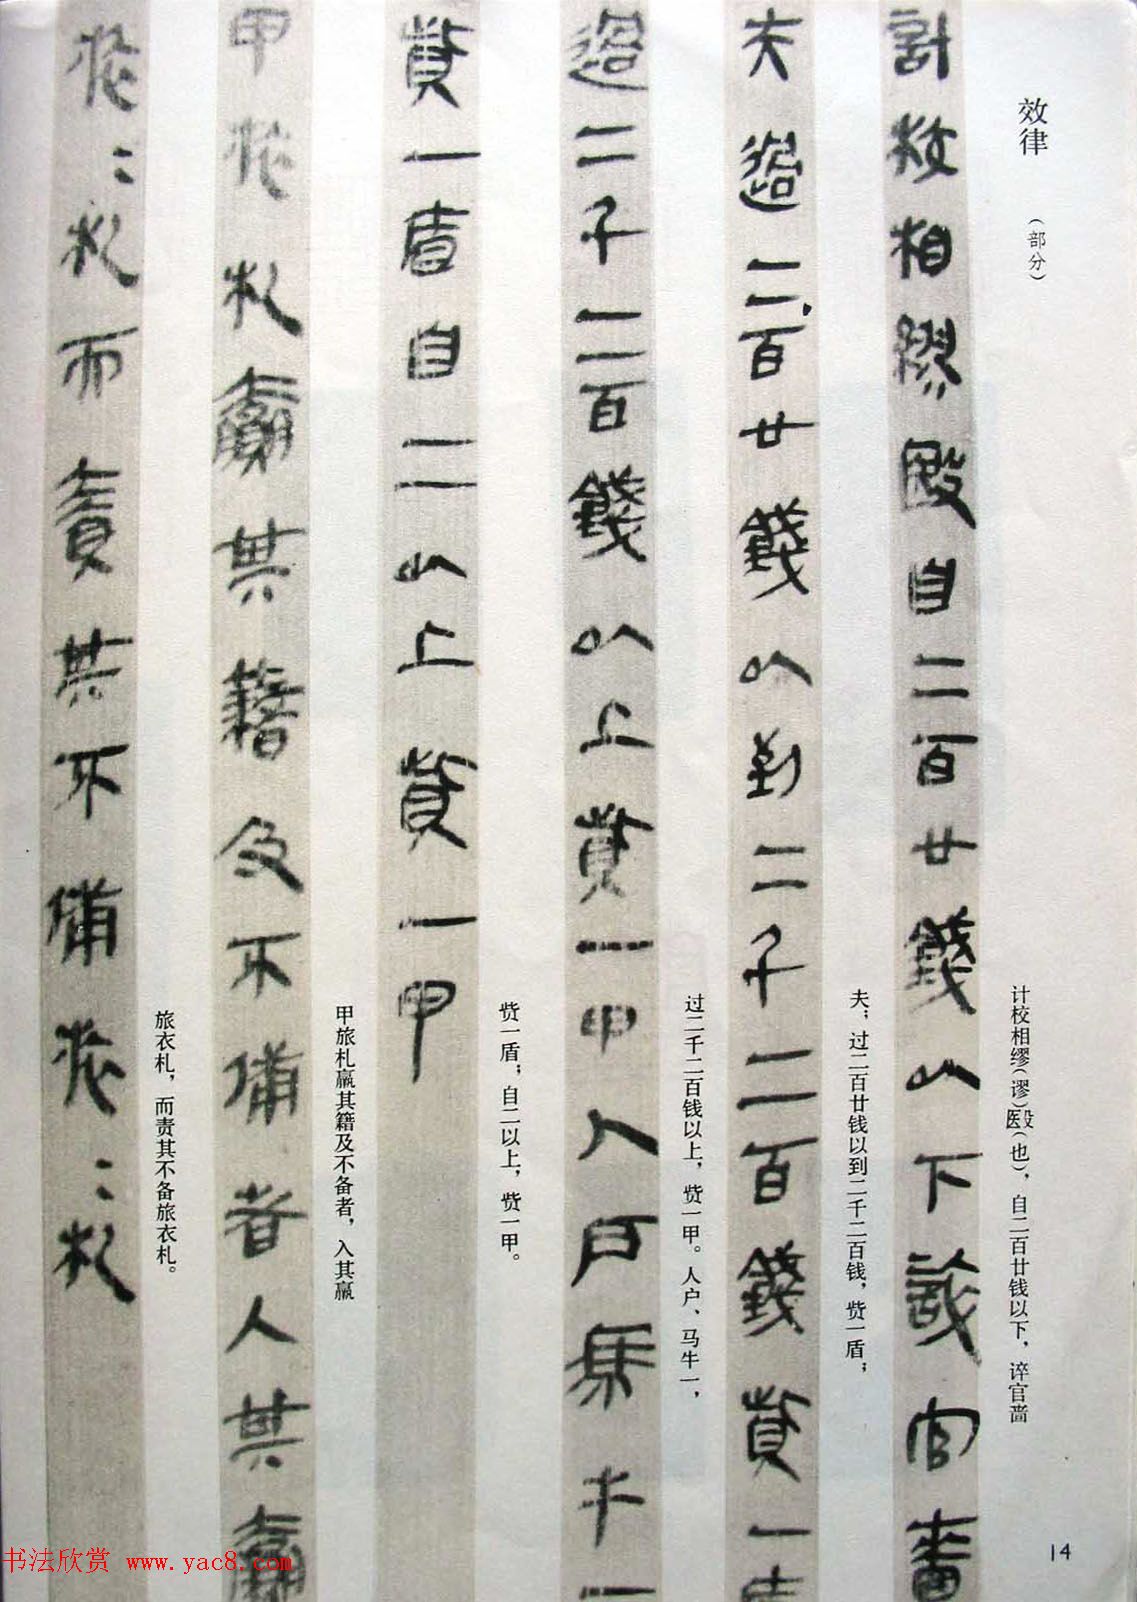 效律
(部分)
計校相繆殹自二百廿錢以下誶官嗇
计校相缪(谬)殹(也)，自二百廿钱以下，谇官啬
夫過二百廿錢以到二千二百錢貲一盾
夫；过二百廿钱以到二千二百钱，赀一盾；
過二千二百錢以上貲一甲人戶馬牛一
过二千二百钱以上，赀一甲。人户、马牛一，
貲一盾自二以上貲一甲
赀一盾；自二以上，赀一甲。
甲旅札贏其籍及不備者入其贏
甲旅札赢其籍及不备者，入其赢
旅〻札而責其不備旅〻札
旅衣札，而责其不备旅衣札。
14
书法欣赏 www.yac8.com